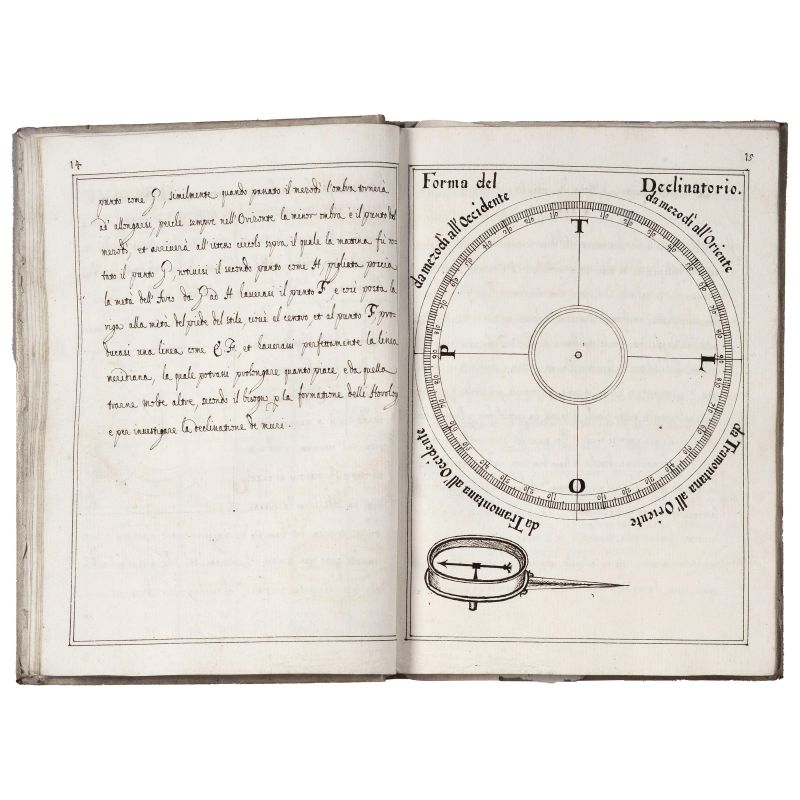 14
punto come G, similmente, quando passato il mezodì l'ombra tornerà
ad' allongarsi, perche sempre nell'Orizonte la minor ombra è il punto del
mezodì, et arriverà all'istesso circolo sopra il quale la matina fù no-
tato il punto G noterassi il secondo punto come H, pigliata poscia
la metà dell'Arco da G ad H haverassi il punto F, e così posta la
riga alla metà del piede del stile cioè al centro, et al punto F, pro-
ducasi una linea come E. F, et haverassi perfettamente la linea
meridiana, la quale potrassi prolongare quanto piace, e da quella
trarne molte altre, secondo il bisogno p la formatione delli Horologi
e per investigare la Declinatione de muri.
15
Forma del Declinatorio.
da mezodì all'Occidente
da mezodì all'Oriente
T
P
L
O
da Tramontana all'Occidente
da Tramontana all'Oriente